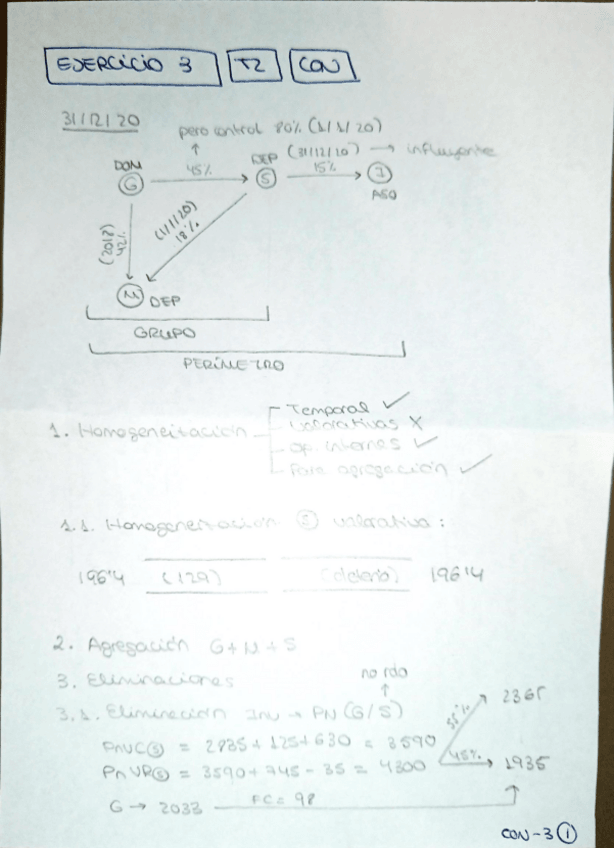 EJERCICIO 3 T2 CON
31/12/20
pero control 80% (1/1/20)
DOM G 45% DEP S (31/12/20) 15% → influyente I ASO
(2018) 42%
(1/1/20) 18%
M DEP
GRUPO
PERÍMETRO
1. Homogeneización
Temporal ✓
Valorativas X
Op. internas ✓
Para agregación ✓
1.1. Homogeneización S valorativa:
196'4 (129) (deterio) 196'4
2. Agregación G+M+S
3. Eliminaciones
no rdo
3.1. Eliminación Inv → PN (G/S)
PNVC S = 2835 + 125 + 630 = 3590
PNVR S = 3590 + 745 - 35 = 4300
55% 2365
45% 1935
G → 2033 FC = 98
CON-3 1